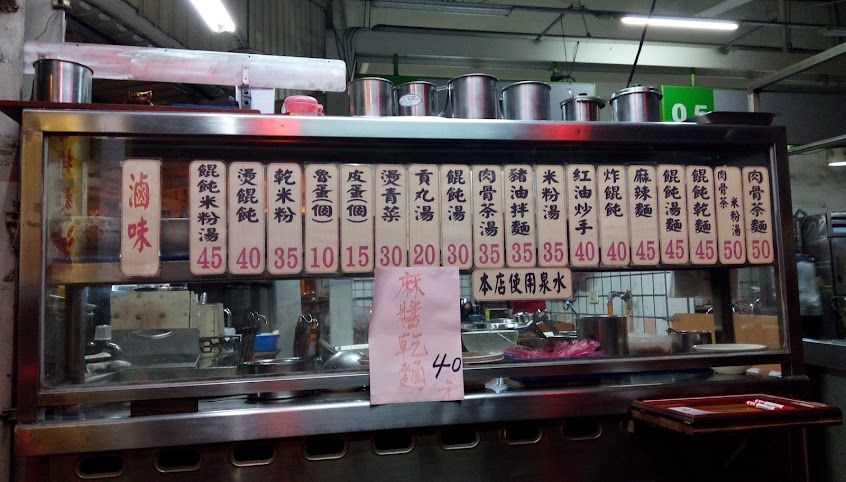 05
滷味
餛飩米粉湯 45
燙餛飩 40
乾米粉 35
魯蛋(個) 10
皮蛋(個) 15
燙青菜 30
貢丸湯 20
餛飩湯 30
肉骨茶湯 35
豬油拌麵 35
米粉湯 35
紅油炒手 40
炸餛飩 40
麻辣麵 45
餛飩湯麵 45
餛飩乾麵 45
肉骨茶 米粉湯 50
肉骨茶麵 50
本店使用泉水
麻醬乾麵 40元